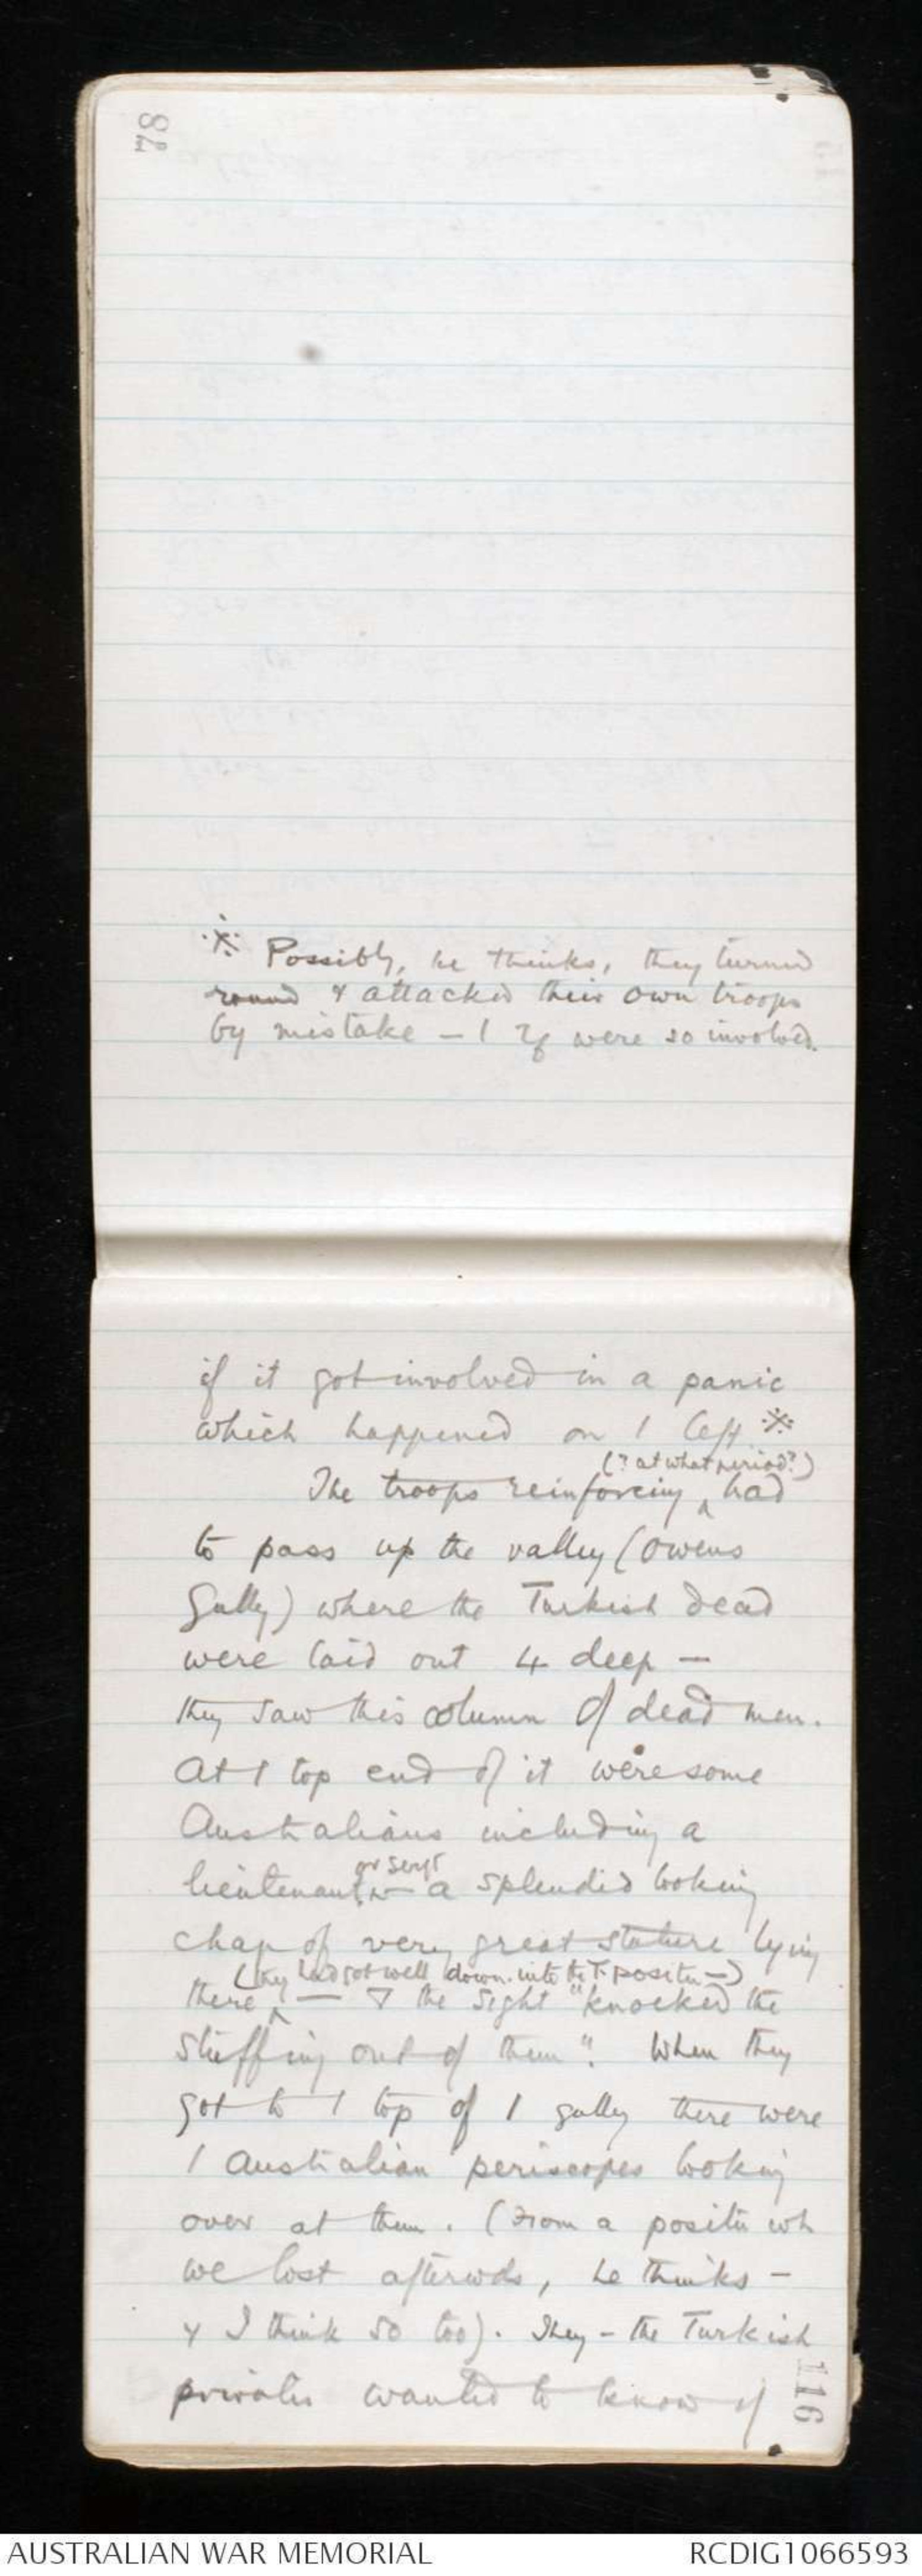 78
※ Possibly, he thinks, they turned
round & attacked their own troops
by mistake – 1 were so involved.
if it got involved in a panic
which happened on 1 left ※
(? at what period?)
The troops reinforcing ^ had
to pass up the valley (Owens
Gully) where the Turkish dead
were laid out 4 deep –
they saw this column of dead men.
At 1 top end of it were some
Australians including a
or sergt
lieutenant, a splendid looking
chap of very great stature lying
(they had got well down into the T. positn –)
there ^ – & the sight "knocked the
stuffing out of them". When they
got to 1 top of 1 gully there were
1 Australian periscopes looking
over at them. (From a positn wh
we lost afterwds, he thinks –
& I think so too). They – the Turkish
privates wanted to know if
116
AUSTRALIAN WAR MEMORIAL
RCDIG1066593